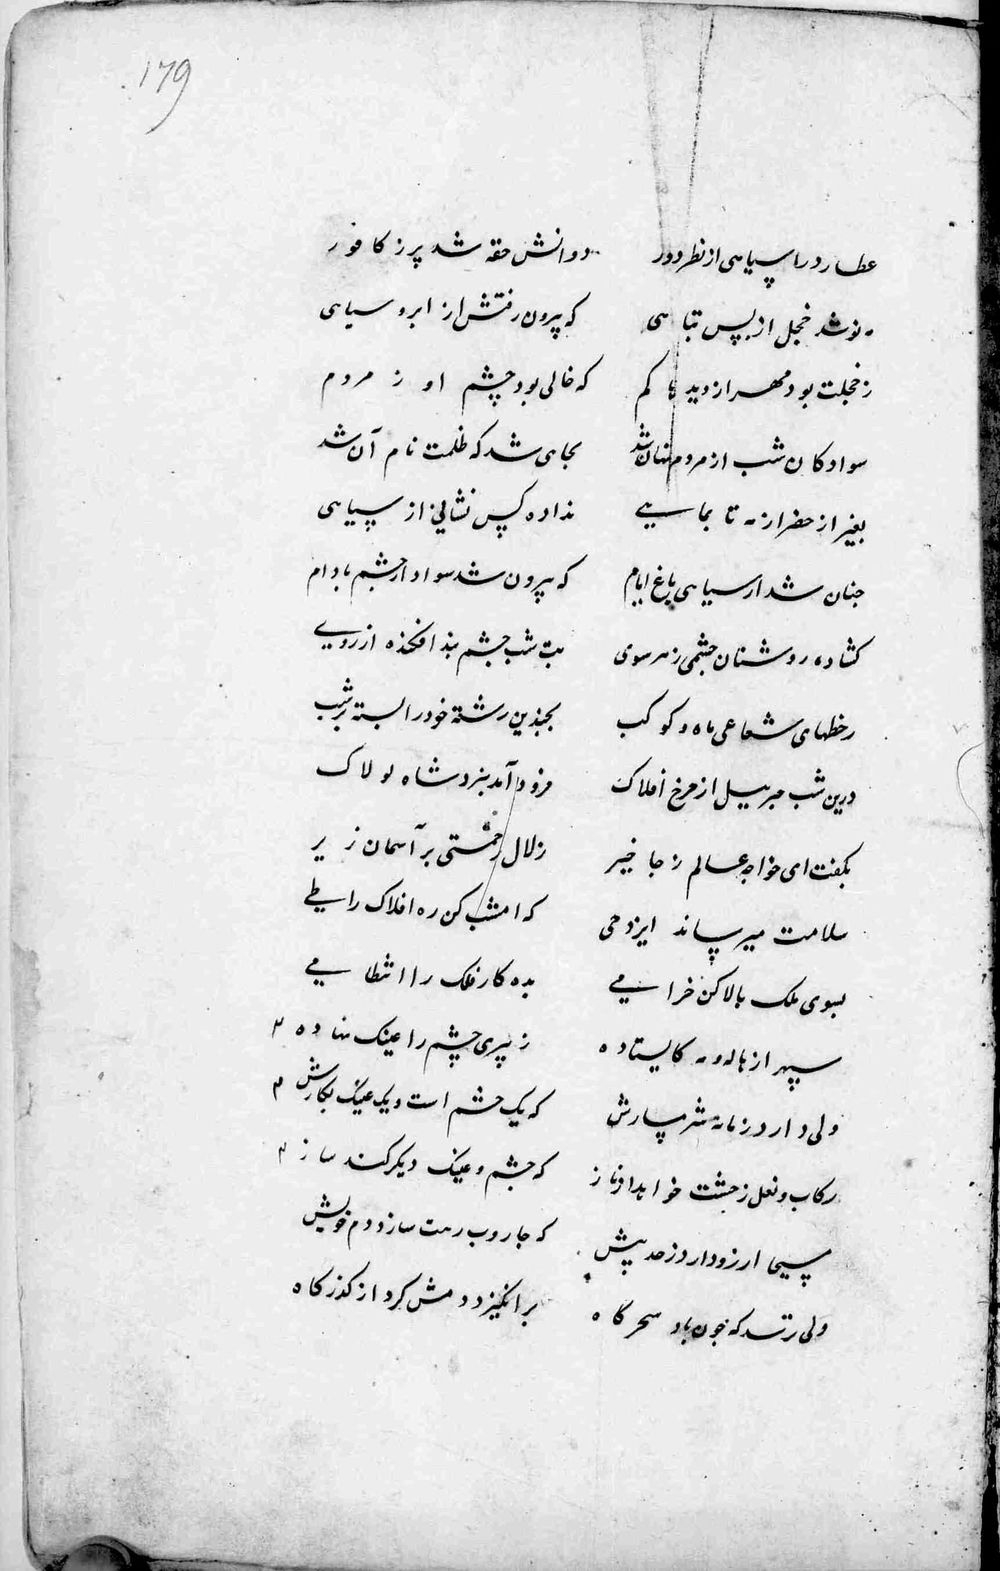 179
عطارد را سیاهی از نظر دور دواتش حقه شد پر ز کافور
مه نو شد خجل از بس تباهی که بیرون رفتش از ابرو سیاهی
ز خجلت بود مهر از دیدها کم که خالی بود چشم او ز مردم
سواد کان شب از مردم نهان شد بجایی شد که ظلمت نام آن شد
بغیر از خضر از مه تا بماهی نداده کس نشانی از سیاهی
چنان شد از سیاهی باغ ایام که بیرون شد سواد از چشم بادام
کشاده روشنان چشمی ز هر سوی بت شب چشم بند افکنده از روی
ز خطهای شعاعی ماه و کوکب بچندین رشته خود را بسته بر شب
درین شب جبرئیل از چرخ افلاک فرود آمد بنزد شاه لولاک
بگفت ای خواجه عالم ز جا خیز زلال رحمتی بر آسمان ریز
سلامت میرساند ایزد حی که امشب کن ره افلاک را طی
بسوی ملک بالا کن خرامی بده کار فلک را انتظامی
سپهر از هاله و مه کایستاده ز پیری چشم را عینک نهاده ۲
ولی دارد زمانه شرمسارش که یک چشم است و یک عینک بکارش ۲
رکاب و نعل رخشت خواهد از ناز که چشم و عینک دیگر کند ساز ۲
مسیحا آرزو دارد ز حد بیش که جاروب رهت سازد دم خویش
ولی ترسد که چون باد سحرگاه برانگیزد دمش گرد از گذرگاه